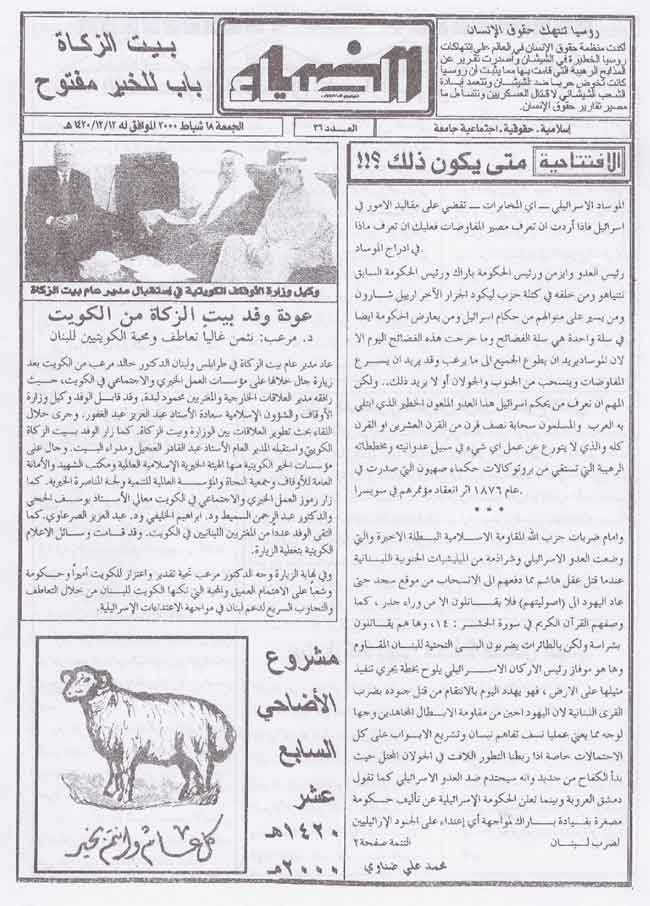 روسيا تنتهك حقوق الإنسان
أكدت منظمة حقوق الإنسان في العالم على إنتهاكات
روسيا الخطيرة في الشيشان وأصدرت تقرير عن
المذابح الرهيبة التي قامت بها مما يثبت أن روسيا
كانت تخوض حرباً ضد الشيشان وتتعمد إبادة
الشعب الشيشاني لا قتال العسكريين ونتساءل ما
مصير تقارير حقوق الإنسان.
الضياء
بيت الزكاة
باب للخير مفتوح
إسلامية، حقوقية، إجتماعية جامعة
العدد ٣٦
الجمعة ١٨ شباط ٢٠٠٠ الموافق له ١٤٢٠/١٢/١٢هـ
الافتتاحية متى يكون ذلك ؟!!
الموساد الاسرائيلي ــ اي المخابرات ــ تقضي على مقاليد الامور في
اسرائيل فاذا أردت ان تعرف مصير المفاوضات فعليك ان تعرف ماذا
في ادراج الموساد.
رئيس العدو وايزمن ورئيس الحكومة باراك ورئيس الحكومة السابق
نتنياهو ومن خلفه في كتلة حزب ليكود الجزار الآخر ارييل شارون
ومن يسير على منوالهم من حكام اسرائيل ومن يعارض الحكومة ايضا
في سلة واحدة هي سلة الفضائح وما خرجت هذه الفضائح اليوم الا
لان الموساد يريد ان يطوع الجميع الى ما يرغب وقد يريد ان يسرع
المفاوضات وينسحب من الجنوب والجولان أو لا يريد ذلك.. ولكن
المهم ان نعرف من يحكم اسرائيل هذا العدو الملعون الخطير الذي ابتلي
به العرب والمسلمون سحابة نصف قرن من القرن العشرين او القرن
كله والذي لا يتورع عن عمل اي شيء في سبيل عدوانيته ومخططاته
الرهيبة التي تستقي من بروتوكالات حكماء صهيون التي صدرت في
عام ١٨٧٦ اثر انعقاد مؤتمرهم في سويسرا.
* * *
وامام ضربات حزب الله للمقاومة الاسلامية البطلة الاخيرة والتي
وضعت العدو الاسرائيلي وشراذمة من الميليشيات الجنوبية اللبنانية
عندما قتل عقل هاشم مما دفعهم الى الانسحاب من موقع سجد حتى
عاد اليهود الى (اصوليتهم) فلا يقاتلون الا من وراء جدر، كما
وصفهم القرآن الكريم في سورة الحشر : ١٤، وها هم يقاتلون
بشراسة ولكن بالطائرات يضربون البنى التحتية للبنان المقاوم
وها هو موفاز رئيس الاركان الاسرائيلي يلوح بخطة يجري تنفيذ
مثيلها على الارض، فهو يهدد اليوم بالانتقام من قتل جنوده بضرب
القرى اللبنانية لان اليهود اجبن من مقاومة الابطال المجاهدين وجها
لوجه مما يعني عمليا نسف تفاهم نيسان وتشريع الابواب على كل
الاحتمالات خاصة اذا ربطنا التطور اللافت في الجولان المحتل حيث
بدأ الكفاح من جديد وانه سيحتدم ضد العدو الاسرائيلي كما تقول
دمشق العروبة وبينما تعلن الحكومة الإسرائيلية عن تأليف حكومة
مصغرة بقيادة باراك لمواجهة أي إعتداء على الجنود الإرائيليين
لضرب لبنان التتمة صفحة ٢
محمد علي ضناوي
وكيل وزارة الأوقاف الكويتية في إستقبال مدير عام بيت الزكاة
عودة وفد بيت الزكاة من الكويت
د. مرعب: نثمن غالياً تعاطف ومحبة الكويتيين للبنان
عاد مدير عام بيت الزكاة في طرابلس ولبنان الدكتور خالد مرعب من الكويت بعد
زيارة جال خلالها على مؤسسات العمل الخيري والاجتماعي في الكويت، حيث
رافقه مدير العلاقات الخارجية والمغتربين محمود لبدة. وقد قابل الوفد وكيل وزارة
الأوقاف والشؤون الإسلامية سعادة الأستاذ عبد العزيز عبد الغفور. وجرى خلال
اللقاء بحث تطوير العلاقات بين الوزارة وبيت الزكاة. كما زار الوفد بيت الزكاة
الكويتي واستقبله المدير العام الأستاذ عبد القادر العجيل ومدراء البيت. وجال على
مؤسسات الخير الكويتية منها الهيئة الخيرية الإسلامية العالمية ومكتب الشهيد والأمانة
العامة للأوقاف وجمعية النجاة والمؤسسة العالمية للتنمية ولجنة المناصرة الخيرية. كما
زار رموز العمل الخيري والاجتماعي في الكويت معالي الأستاذ يوسف الحجي
والدكتور عبد الرحمن السميط ود. ابراهيم الخليفي ود. عبد العزيز الصرعاوي. كما
التقى الوفد عدداً من المغتربين اللبنانيين في الكويت. وقد قامت وسائل الاعلام
الكويتية بتغطية الزيارة.
وفي نهاية الزيارة وجه الدكتور مرعب تحية تقدير واعتزاز للكويت أميراً وحكومة
وشعباً على الاهتمام العميق والمحبة التي تكنها الكويت للبنان من خلال التعاطف
والتجاوب السريع لدعم لبنان في مواجهة الاعتداءات الإسرائيلية.
مشروع
الأضاحي
السابع
عشر
١٤٢٠هـ
٢٠٠٠م
كل عام وأنتم بخير